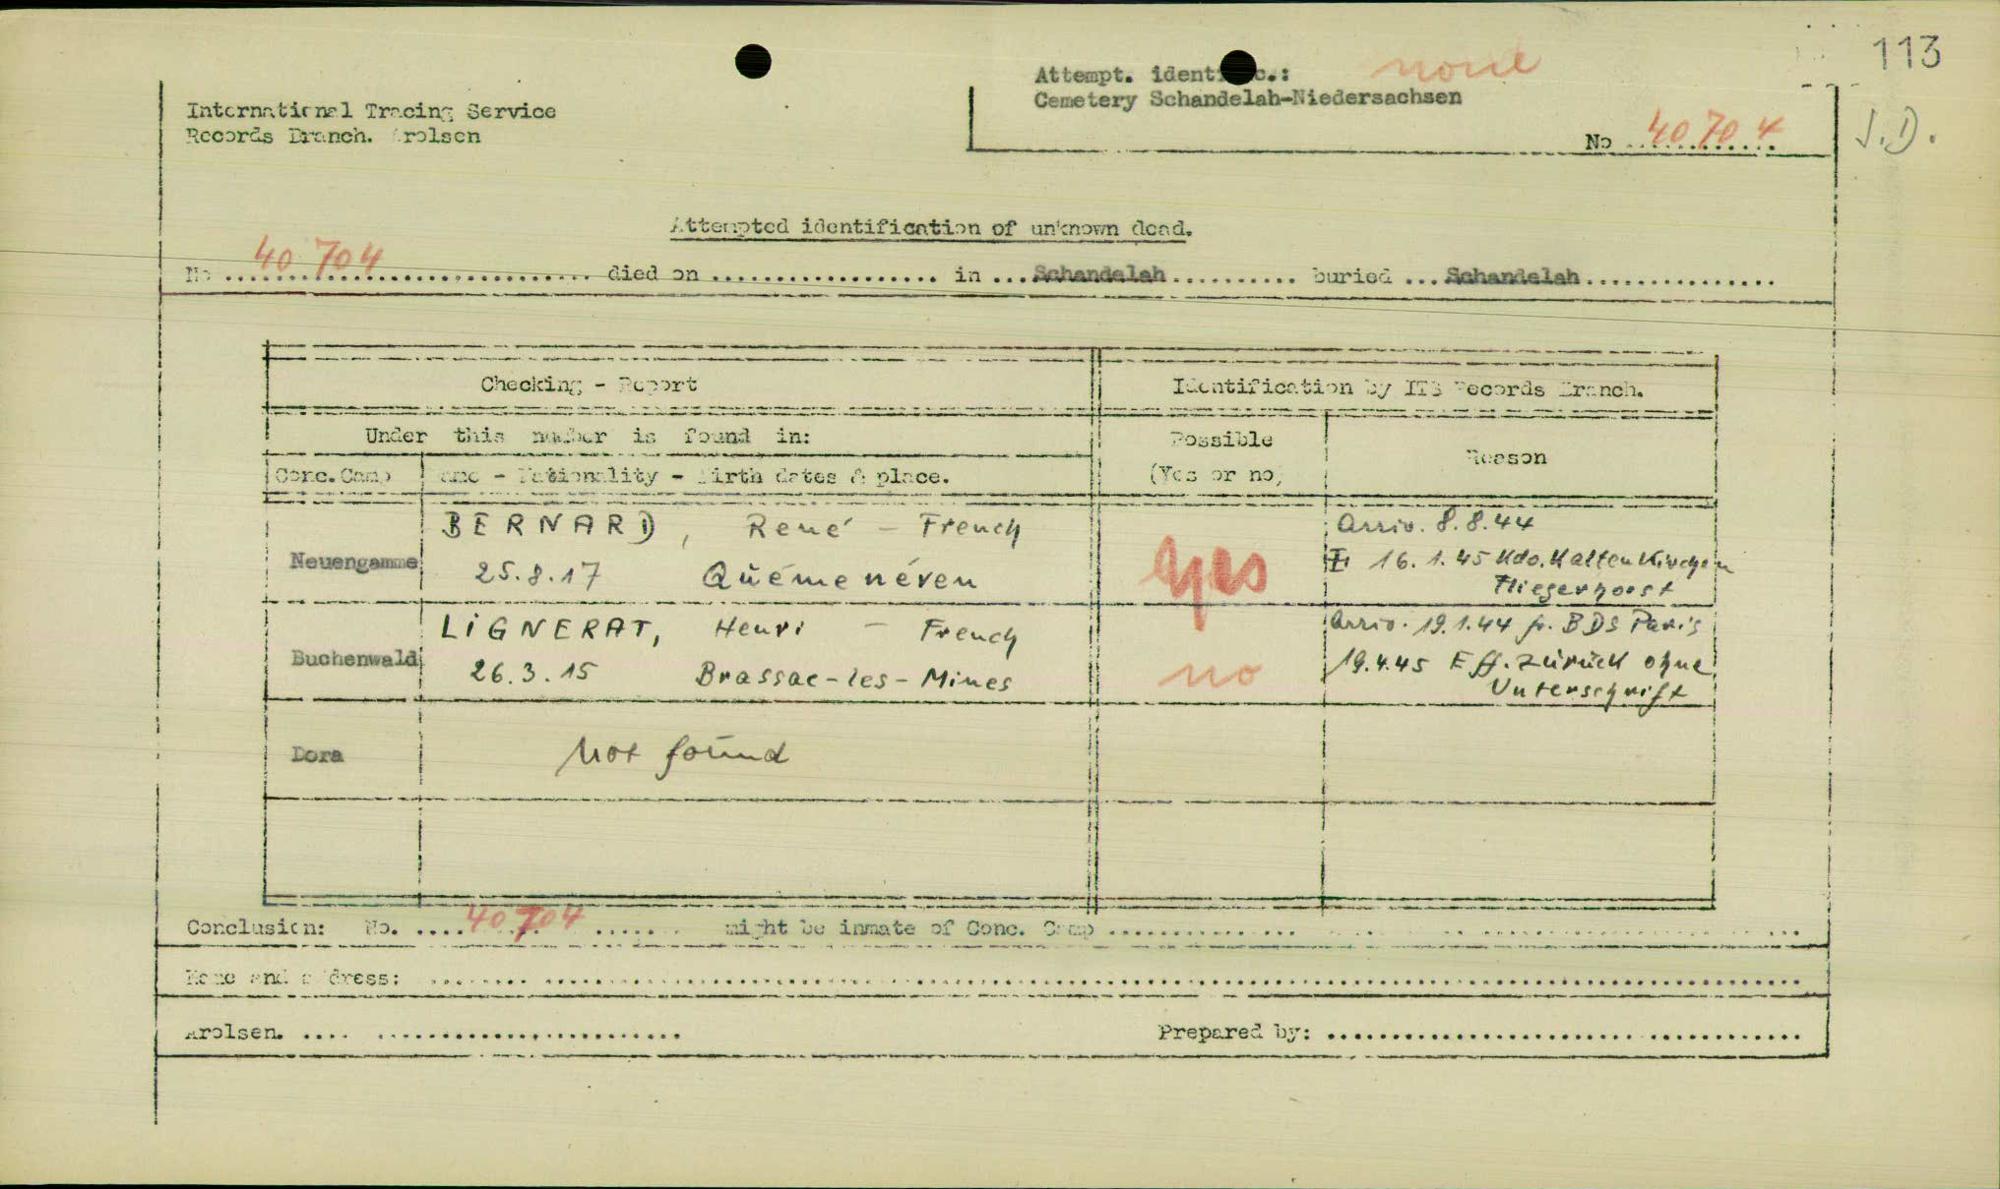 113
Attempt. identific.: none
Cemetery Schandelah-Niedersachsen
International Tracing Service
Records Branch. Arolsen
No 40704
J.D.
Attempted identification of unknown dead.
No 40704 died on .................. in ... Schandelah .......... buried ... Schandelah ...............
Checking - Report
Identification by ITS Records Branch.
Under this number is found in:
Possible
(Yes or no)
Reason
Conc.Camp
Name - Nationality - Birth dates & place.
Neuengamme
BERNARD, René - French
25.8.17 Quéménéven
yes
Arriv. 8.8.44
16.1.45 Kdo. Kaltenkirchen
Fliegerhorst
Buchenwald
LIGNERAT, Henri - French
26.3.15 Brassac-les-Mines
no
Arriv. 19.1.44 fr. BDS Paris
19.4.45 Eff. zurück ohne
Unterschrift
Dora
Not found
Conclusion: No. .... 40704 ...... might be inmate of Conc. Camp ...............
Name and address: ...............
Arolsen. ...............
Prepared by: ...............